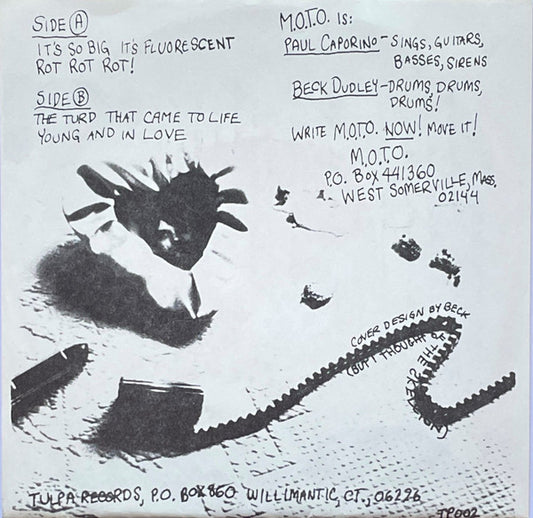 SIDE A
IT'S SO BIG IT'S FLUORESCENT
ROT ROT ROT!
SIDE B
THE TURD THAT CAME TO LIFE
YOUNG AND IN LOVE
M.O.T.O. IS:
PAUL CAPORINO - SINGS, GUITARS,
BASSES, SIRENS
BECK DUDLEY - DRUMS, DRUMS,
DRUMS!
WRITE M.O.T.O. NOW! MOVE IT!
M.O.T.O.
P.O. BOX 441360
WEST SOMERVILLE, MASS.
02144
COVER DESIGN BY BECK
(BUT I THOUGHT OF
THE
TULPA RECORDS, P.O. BOX 860 WILLIMANTIC, CT., 06226
TP002